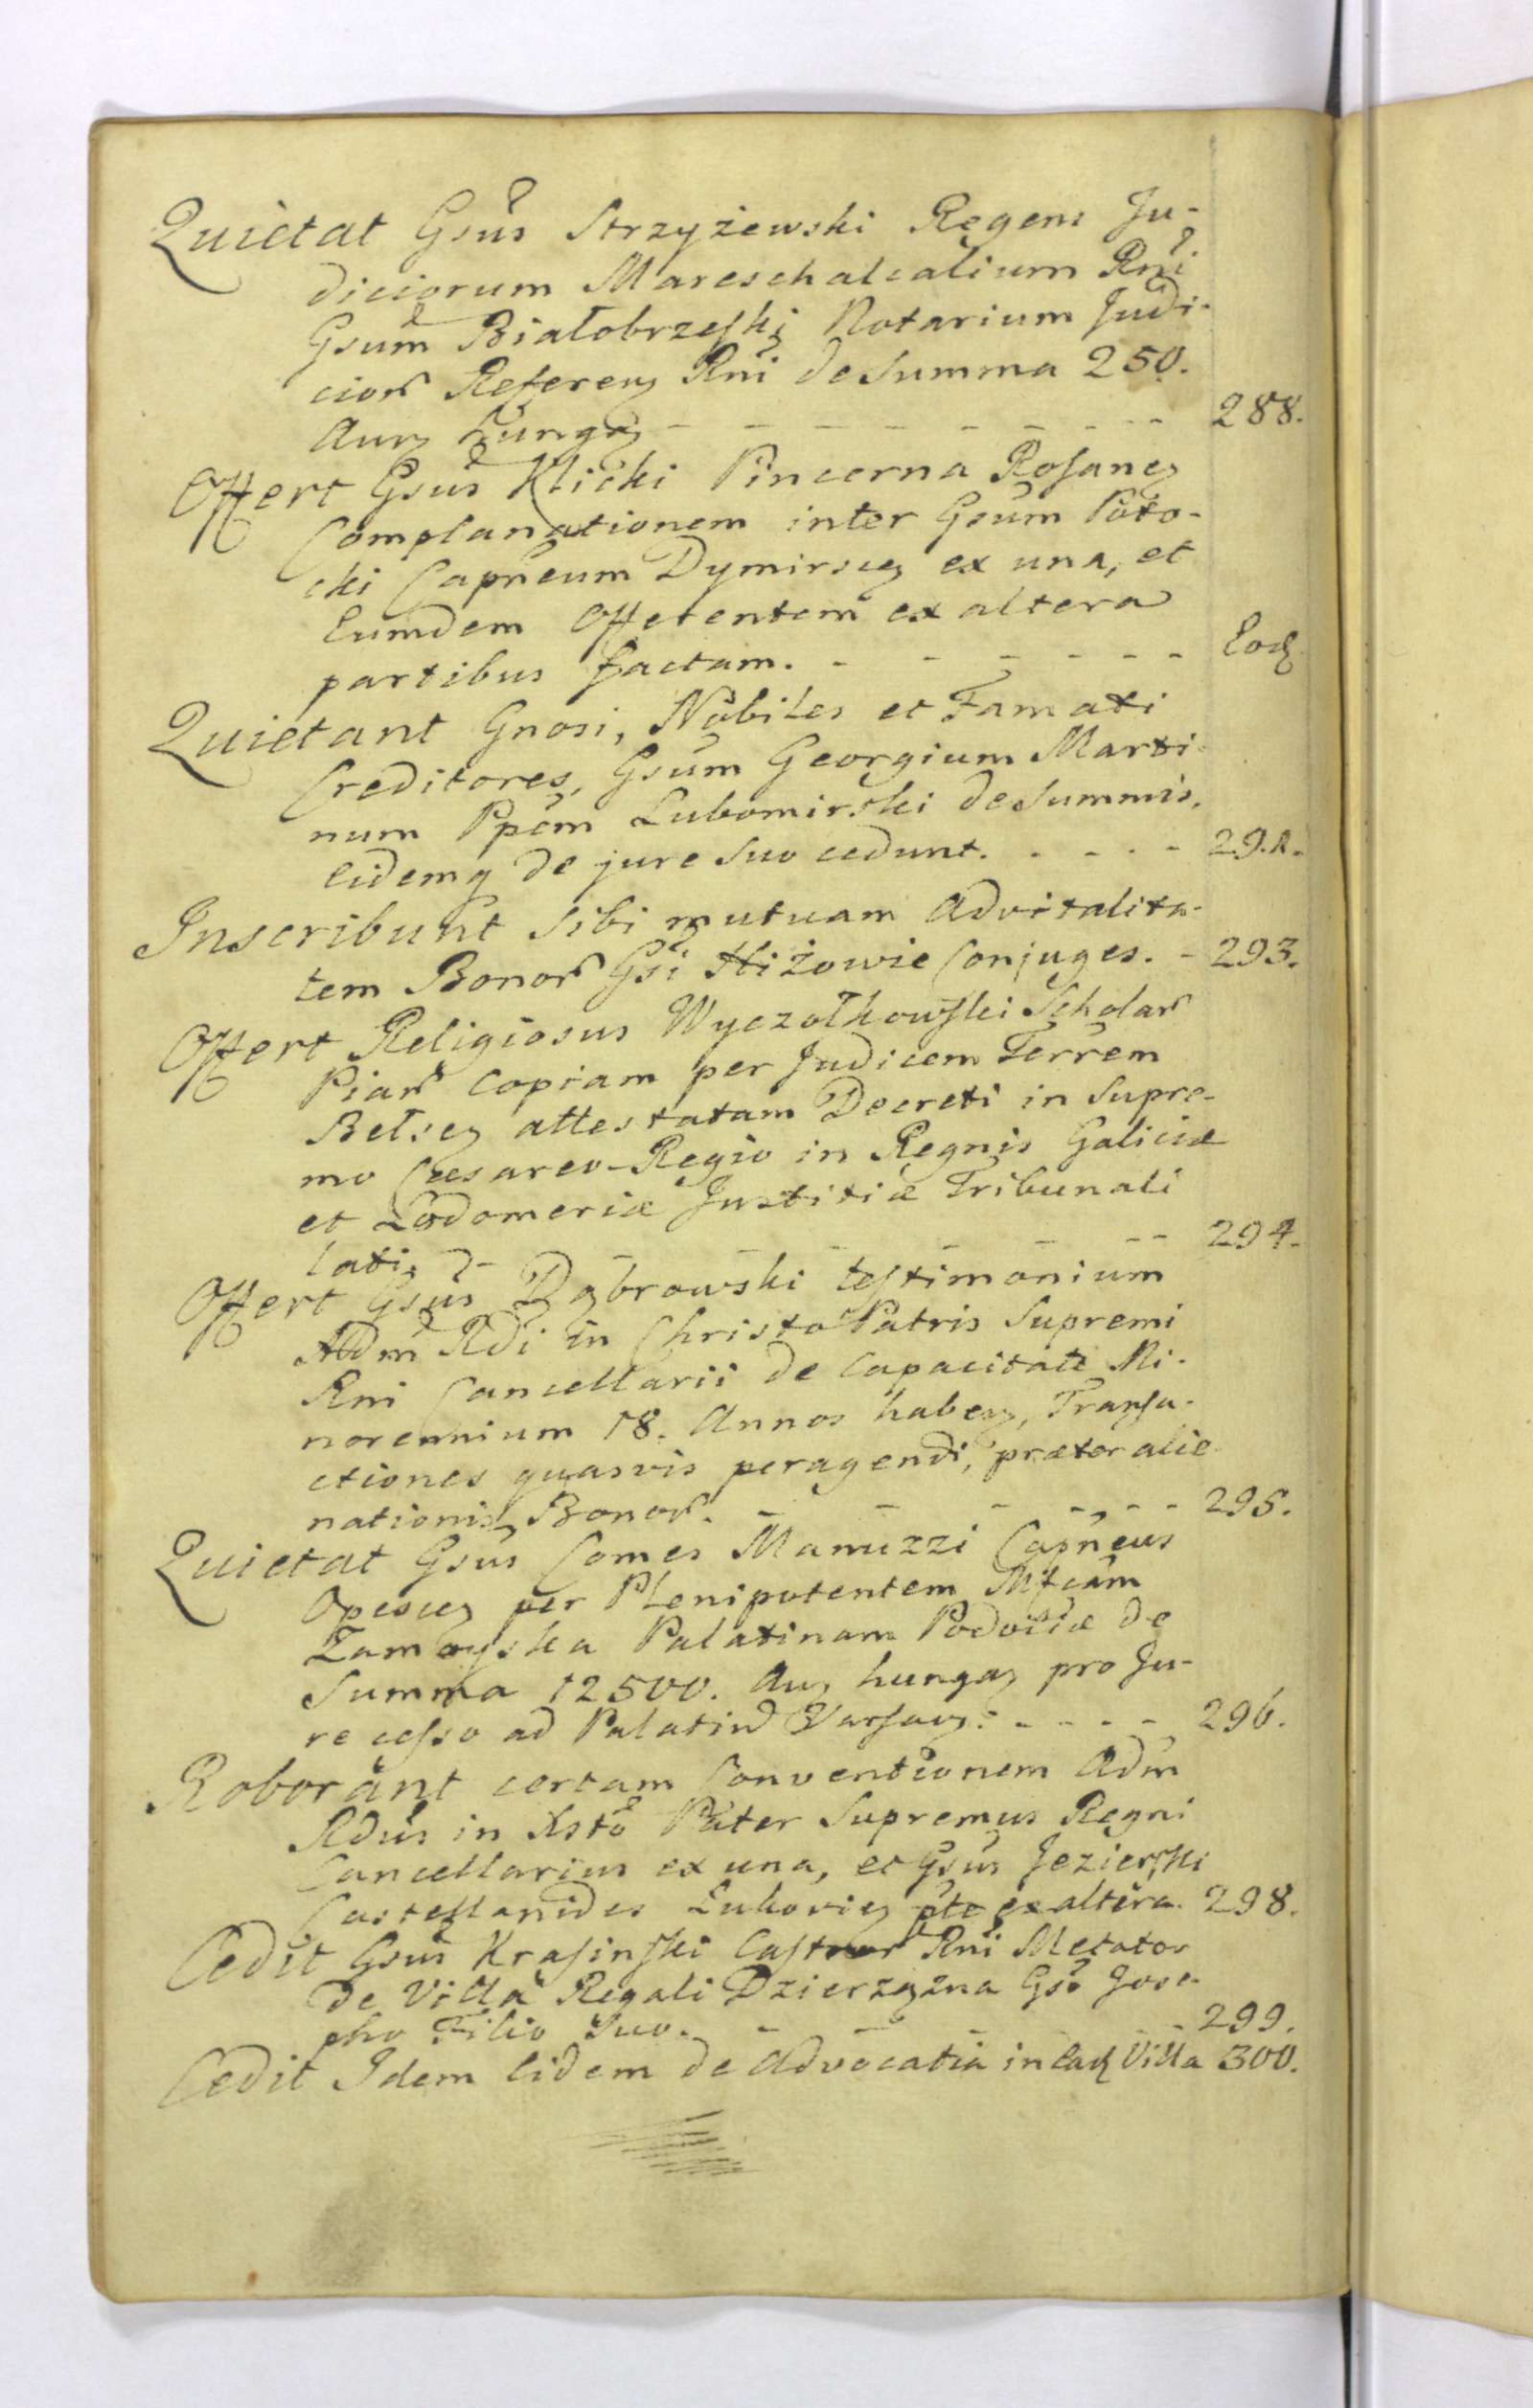 Quietat Gsus Strzyżewski Regens Ju-
diciorum Mareschalcalium Rni
Gsum Białobrzeski Notarium Judi-
cior Referen Rni de Summa 250.
Aur Hunga - - - - - - - - 288.
Offert Gsus Klicki Pincerna Rosanen
Complanationem inter Gsum Poto-
cki Capneum Dymirscen ex una, et
Eumdem Offerentem ex altera
partibus factam. - - - - - - - Eod
Quietant Gnosi, Nobiles et Famati
Creditores, Gsum Georgium Marti-
num Ppem Lubomirski de Summis,
Eidemq de jure suo cedunt. - - - -
Inscribunt sibi mutuam Advitalita-
tem Bonor Gsi Hiżowie Conjuges. - 293.
Offert Religiosus Wyczołkowski Scholar
Piar Copiam per Judicem Terrem
Belsen attestatam Decreti in Supre-
mo Cæsareo-Regio in Regnis Galiciæ
et Lodomeriæ Justitiæ Tribunali
lati - - - - - - 294.
Offert Gsus Dąbrowski testimonium
Adm Rdi in Christo Patris Supremi
Rni Cancellarii de Capacitate Mi-
norennium 18. Annos haben, Transa-
ctiones quasvis peragendi, præter alie-
nationis Bonor. - - - - - - 295.
Quietat Gsus Comes Manuzzi Capneus
Opescen per Plenipotentem Mfcam
Zamoyska Palatinam Podoliæ de
Summa 12500. Aur hunga pro Ju-
re cesso ad Palatin Varsav: - - - - 296.
Roborant certam Conventionem Adm
Rdus in Xsto Pater Supremus Regni
Cancellarius ex una, et Gsus Jezierski
Castellanides Lukovien pte ex altera. 298.
Cedit Gsus Krasinski Castror Rni Metator
de Villa Regali Dzierzązna Gso Jose-
pho Filio Suo. - - - - - 299.
Cedit Idem Eidem de Advocatia in Ead Villa 300.